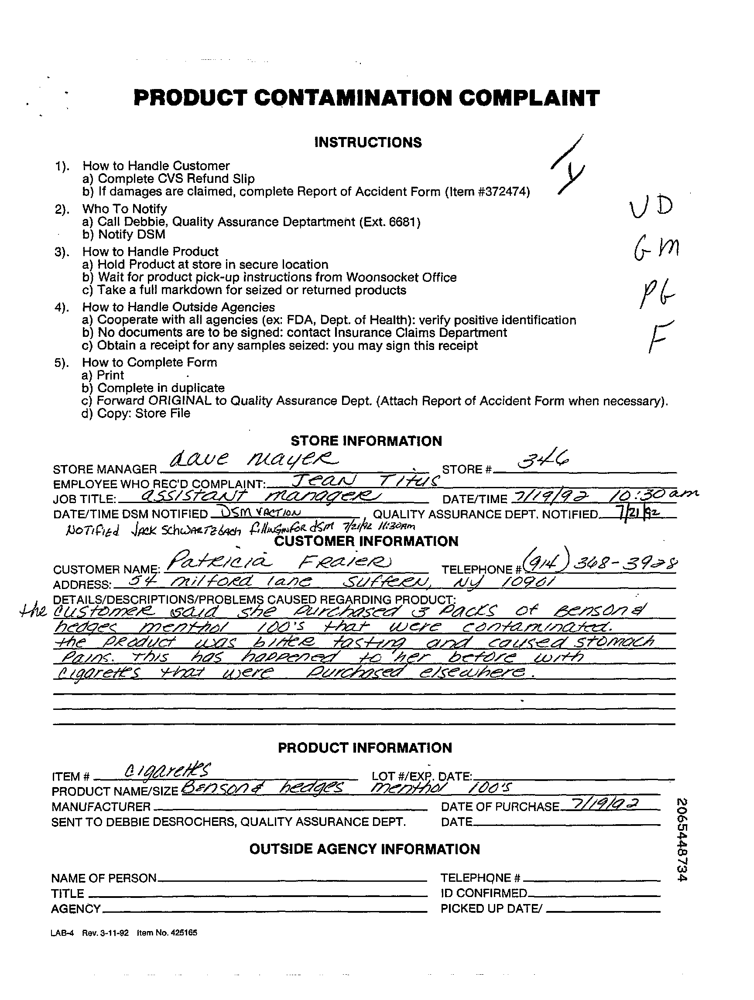 PRODUCT CONTAMINATION COMPLAINT
INSTRUCTIONS
1). How to Handle Customer
a) Complete CVS Refund Slip
b) If damages are claimed, complete Report of Accident Form (Item #372474)
2). Who To Notify
a) Call Debbie, Quality Assurance Deptartment (Ext. 6681)
b) Notify DSM
3). How to Handle Product
a) Hold Product at store in secure location
b) Wait for product pick-up instructions from Woonsocket Office
c) Take a full markdown for seized or returned products
4). How to Handle Outside Agencies
a) Cooperate with all agencies (ex: FDA, Dept. of Health): verify positive identification
b) No documents are to be signed: contact Insurance Claims Department
c) Obtain a receipt for any samples seized: you may sign this receipt
5). How to Complete Form
a) Print
b) Complete in duplicate
c) Forward ORIGINAL to Quality Assurance Dept. (Attach Report of Accident Form when necessary).
d) Copy: Store File
VD
GM
PG
F
STORE INFORMATION
STORE MANAGER dave mayer STORE # 346
EMPLOYEE WHO REC'D COMPLAINT: Jean Titus
JOB TITLE: assistant manager DATE/TIME 7/19/92 10:30 am
DATE/TIME DSM NOTIFIED DSM VACTION, QUALITY ASSURANCE DEPT. NOTIFIED 7/21/92
NOTIFIED JACK SCHWARTZBACH filling in for DSM 7/21/92 11:30AM
CUSTOMER INFORMATION
CUSTOMER NAME: Patricia Fraier TELEPHONE # (914) 368-3928
ADDRESS: 54 milford lane Suffern, NY 10901
DETAILS/DESCRIPTIONS/PROBLEMS CAUSED REGARDING PRODUCT:
the customer said she purchased 3 packs of Benson &
hedges menthol 100's that were contaminated.
the product was bitter tasting and caused stomach
pains. this has happened to her before with
cigarettes that were purchased elsewhere.
PRODUCT INFORMATION
ITEM # cigarettes LOT #/EXP. DATE:
PRODUCT NAME/SIZE Benson & hedges menthol 100's
MANUFACTURER DATE OF PURCHASE 7/19/92
SENT TO DEBBIE DESROCHERS, QUALITY ASSURANCE DEPT. DATE
OUTSIDE AGENCY INFORMATION
NAME OF PERSON TELEPHONE #
TITLE ID CONFIRMED
AGENCY PICKED UP DATE/
LAB-4 Rev. 3-11-92 Item No. 425165
2065448734